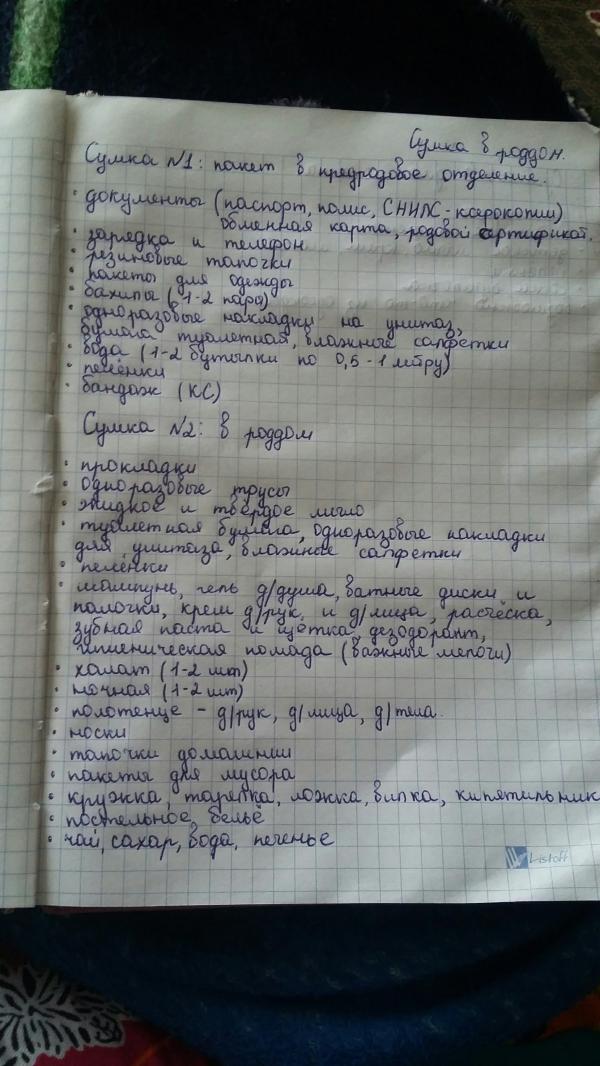 Сумка в роддом.
Сумка №1: пакет в предродовое отделение.
· документы (паспорт, полис, СНИЛС - ксерокопии)
обменная карта, родовой сертификат.
· зарядка и телефон
· резиновые тапочки
· пакеты для одежды
· бахилы (1-2 пары)
· одноразовые накладки на унитаз,
бумага туалетная, влажные салфетки
· вода (1-2 бутылки по 0,5 - 1 литру)
· пелёнки
· бандаж (КС)
Сумка №2: в роддом
· прокладки
· одноразовые трусы
· жидкое и твёрдое мыло
· туалетная бумага, одноразовые накладки
для унитаза, влажные салфетки
· пелёнки
· шампунь, гель д/душа, ватные диски и
палочки, крем д/рук и д/лица, расчёска,
зубная паста и щётка, дезодорант,
гигиеническая помада (важные мелочи)
· халат (1-2 шт)
· ночная (1-2 шт)
· полотенце - д/рук, д/лица, д/тела.
· носки
· тапочки домашнии
· пакеты для мусора
· кружка, тарелка, ложка, вилка, кипятильник
· постельное, бельё
· чай, сахар, вода, печенье
Listoff